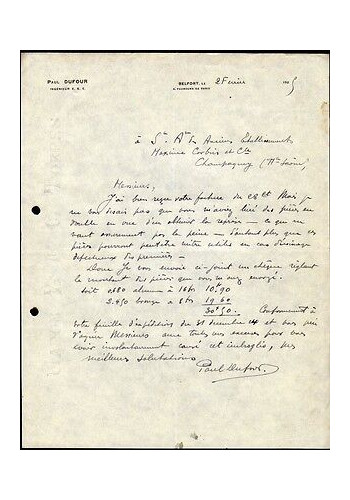 PAUL DUFOUR
INGÉNIEUR E. B. E.
BELFORT, LE 2 Février 19 5
6, FAUBOURG DE PARIS
à Sté Ame des Anciens Etablissements
Maxime Corbin et Cie
Champagney (Hte Saône)
Messieurs,
J'ai bien reçu votre facture du 28 et Mais je
ne savais pas que vous m'aviez livré des pièces en
double en vue d'en obtenir la reprise — ce qui ne
vaut assurément pas la peine — d'autant plus que ces
pièces pourront peut être être utiles en cas d'usinage
défectueux des premières —
Donc je vous envoie ci-joint un chèque réglant
le montant des pièces que vous m'avez envoyé.
soit 0.680 alumin à 16frs 10.90
2.450 bronze à 8frs 19 60
30f50. Conformément à
votre feuille d'expédition du 31 décembre et vous prie
d'agréer Messieurs avec toutes mes excuses pour vous
avoir involontairement causé cet imbroglio, mes
meilleures salutations
Paul Dufour